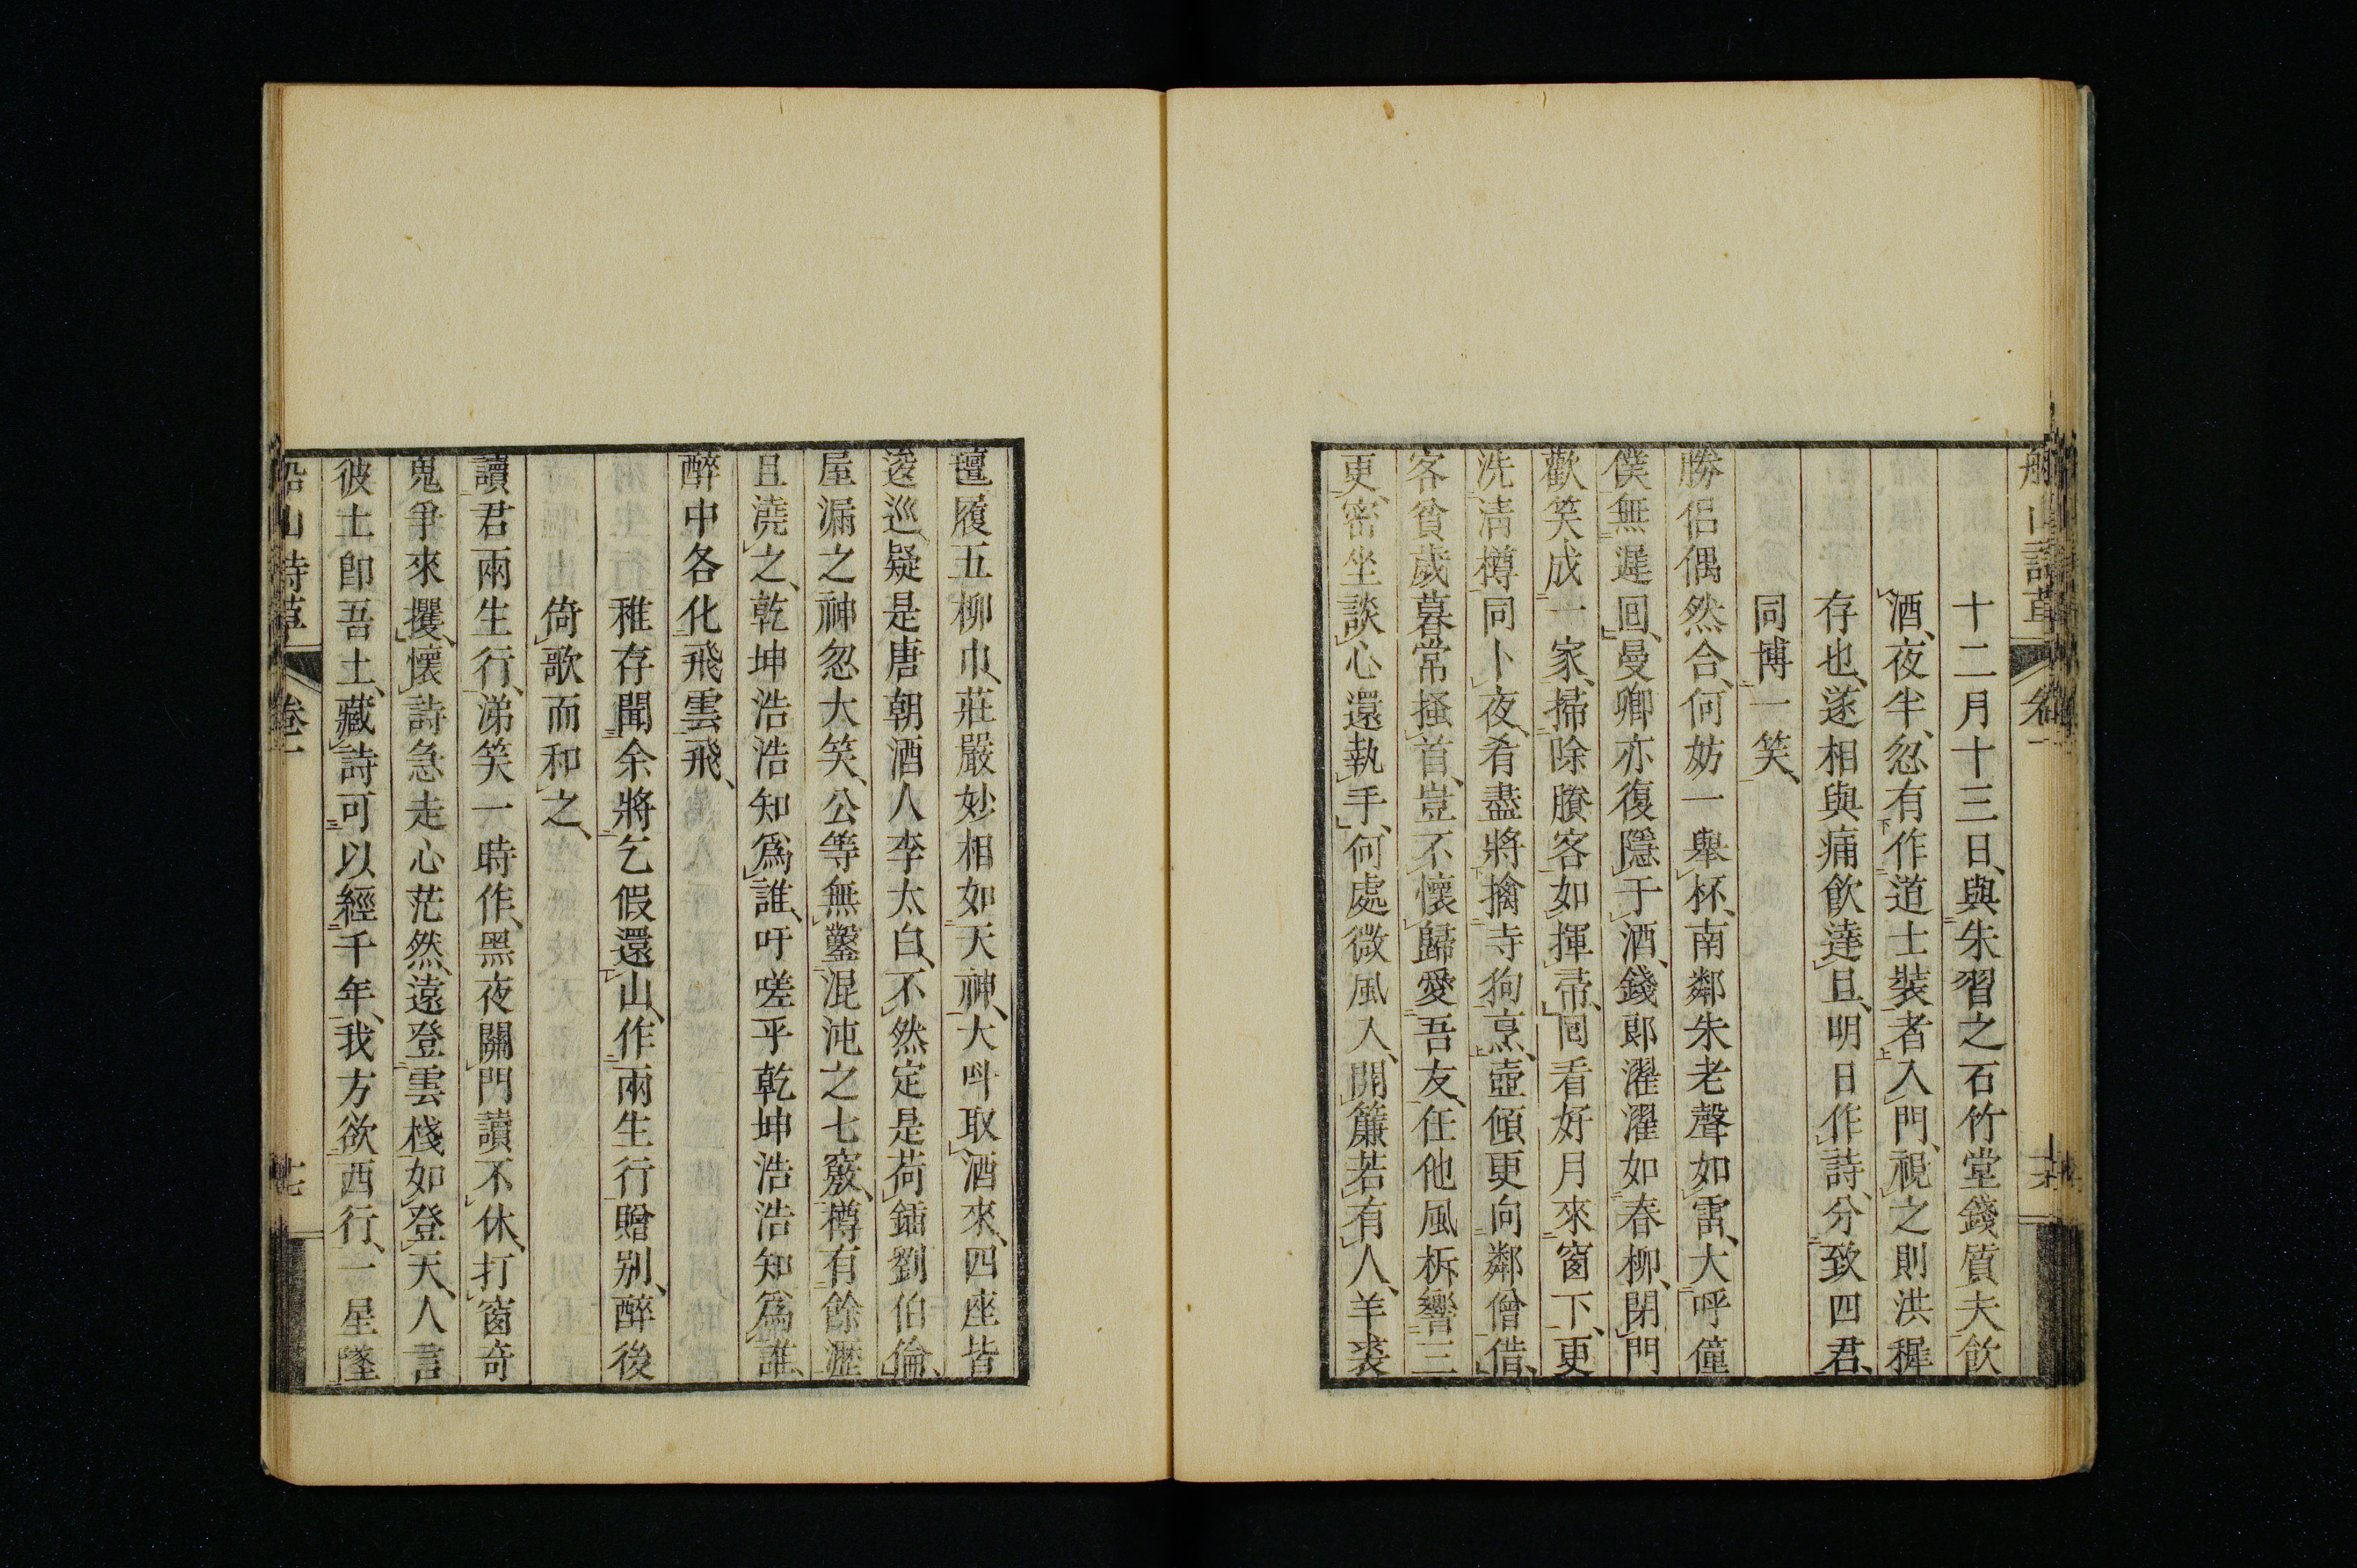 船山詩草 卷一
十二月十三日、與朱習之石竹堂錢質夫飲
酒、夜半、忽有作道士裝者入門、視之則洪稚
存也、遂相與痛飲達旦、明日作詩、分致四君、
同博一笑、
勝侶偶然合、何妨一舉杯、南鄰朱老聲如雷、大呼僮
僕無遲回、曼卿亦復隱于酒、錢郎濯濯如春柳、閉門
歡笑成一家、掃除賸客如揮帚、回看好月來窗下、更
洗清樽同卜夜、肴盡將擒寺狗烹、壺傾更向鄰僧借、
客貧歲暮常搔首、豈不懷歸愛吾友、任他風柝響三
更、密坐談心還執手、何處微風入、開簾若有人、羊裘
氊履五柳巾、莊嚴妙相如天神、大呌取酒來、四座皆
逡巡、疑是唐朝酒人李太白、不然定是荷鍤劉伯倫、
屋漏之神忽大笑、公等無鑿混沌之七竅、樽有餘瀝
且澆之、乾坤浩浩知爲誰、吁嗟乎乾坤浩浩知爲誰、
醉中各化飛雲飛、
稚存聞余將乞假還山、作兩生行贈別、醉後
倚歌而和之、
讀君兩生行、涕笑一時作、黑夜關門讀不休、打窗奇
鬼爭來攫、懷詩急走心茫然、遠登雲棧如登天、人言
彼土卽吾土、藏詩可以經千年、我方欲西行、一星墜
船山詩草 卷一 十七